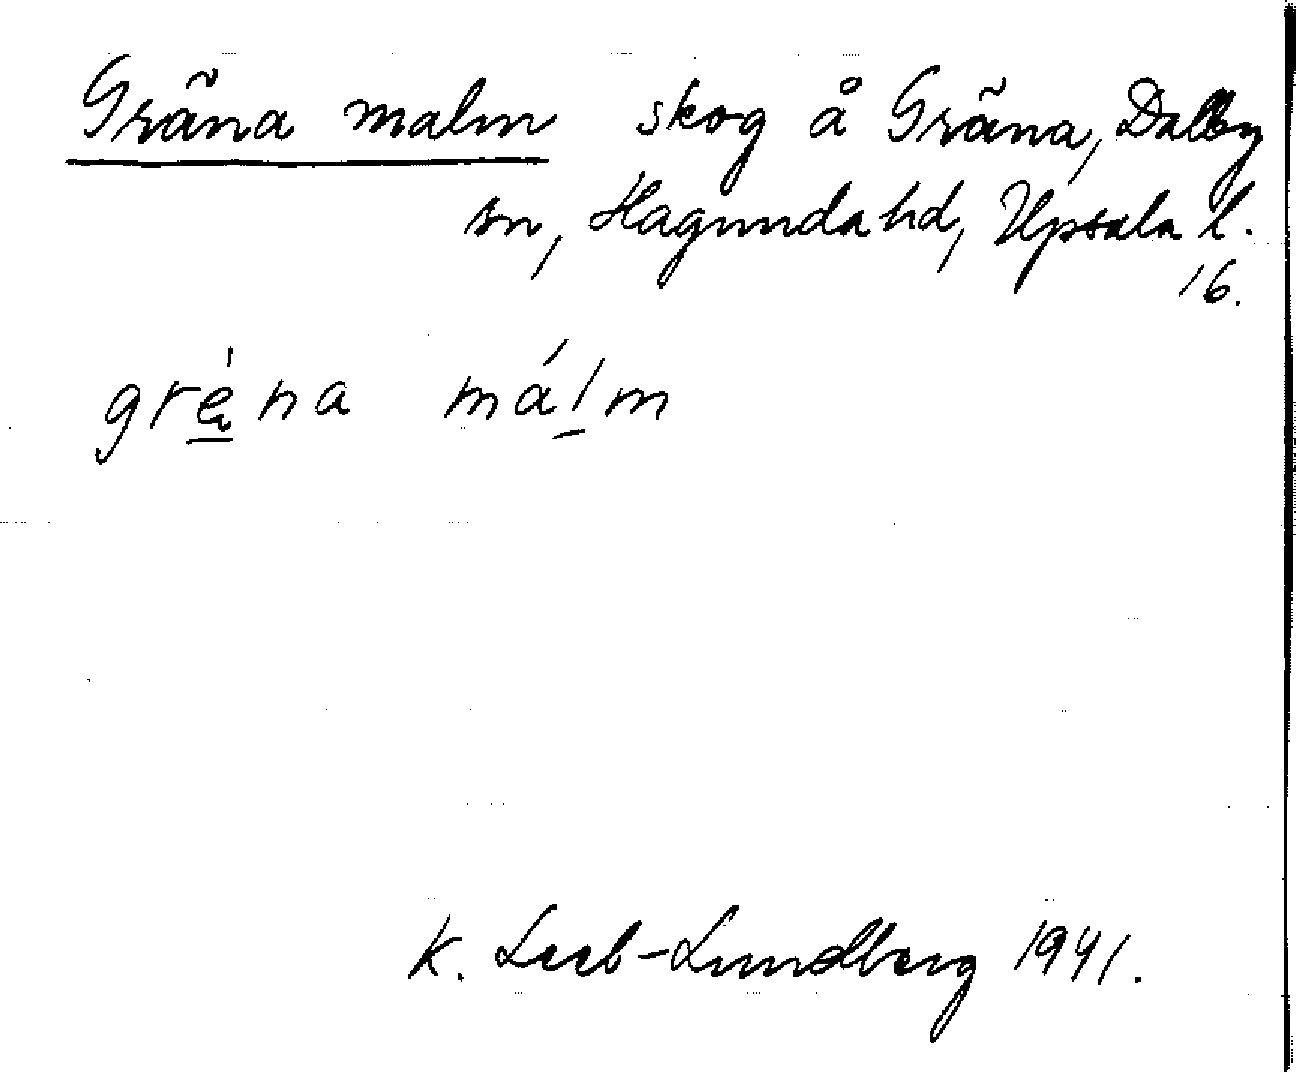 Gräna malm skog å Gräna, Dalby
sn, Hagunda hd, Upsala l.
16.
grę̀na málm
K. Leeb-Lundberg 1941.